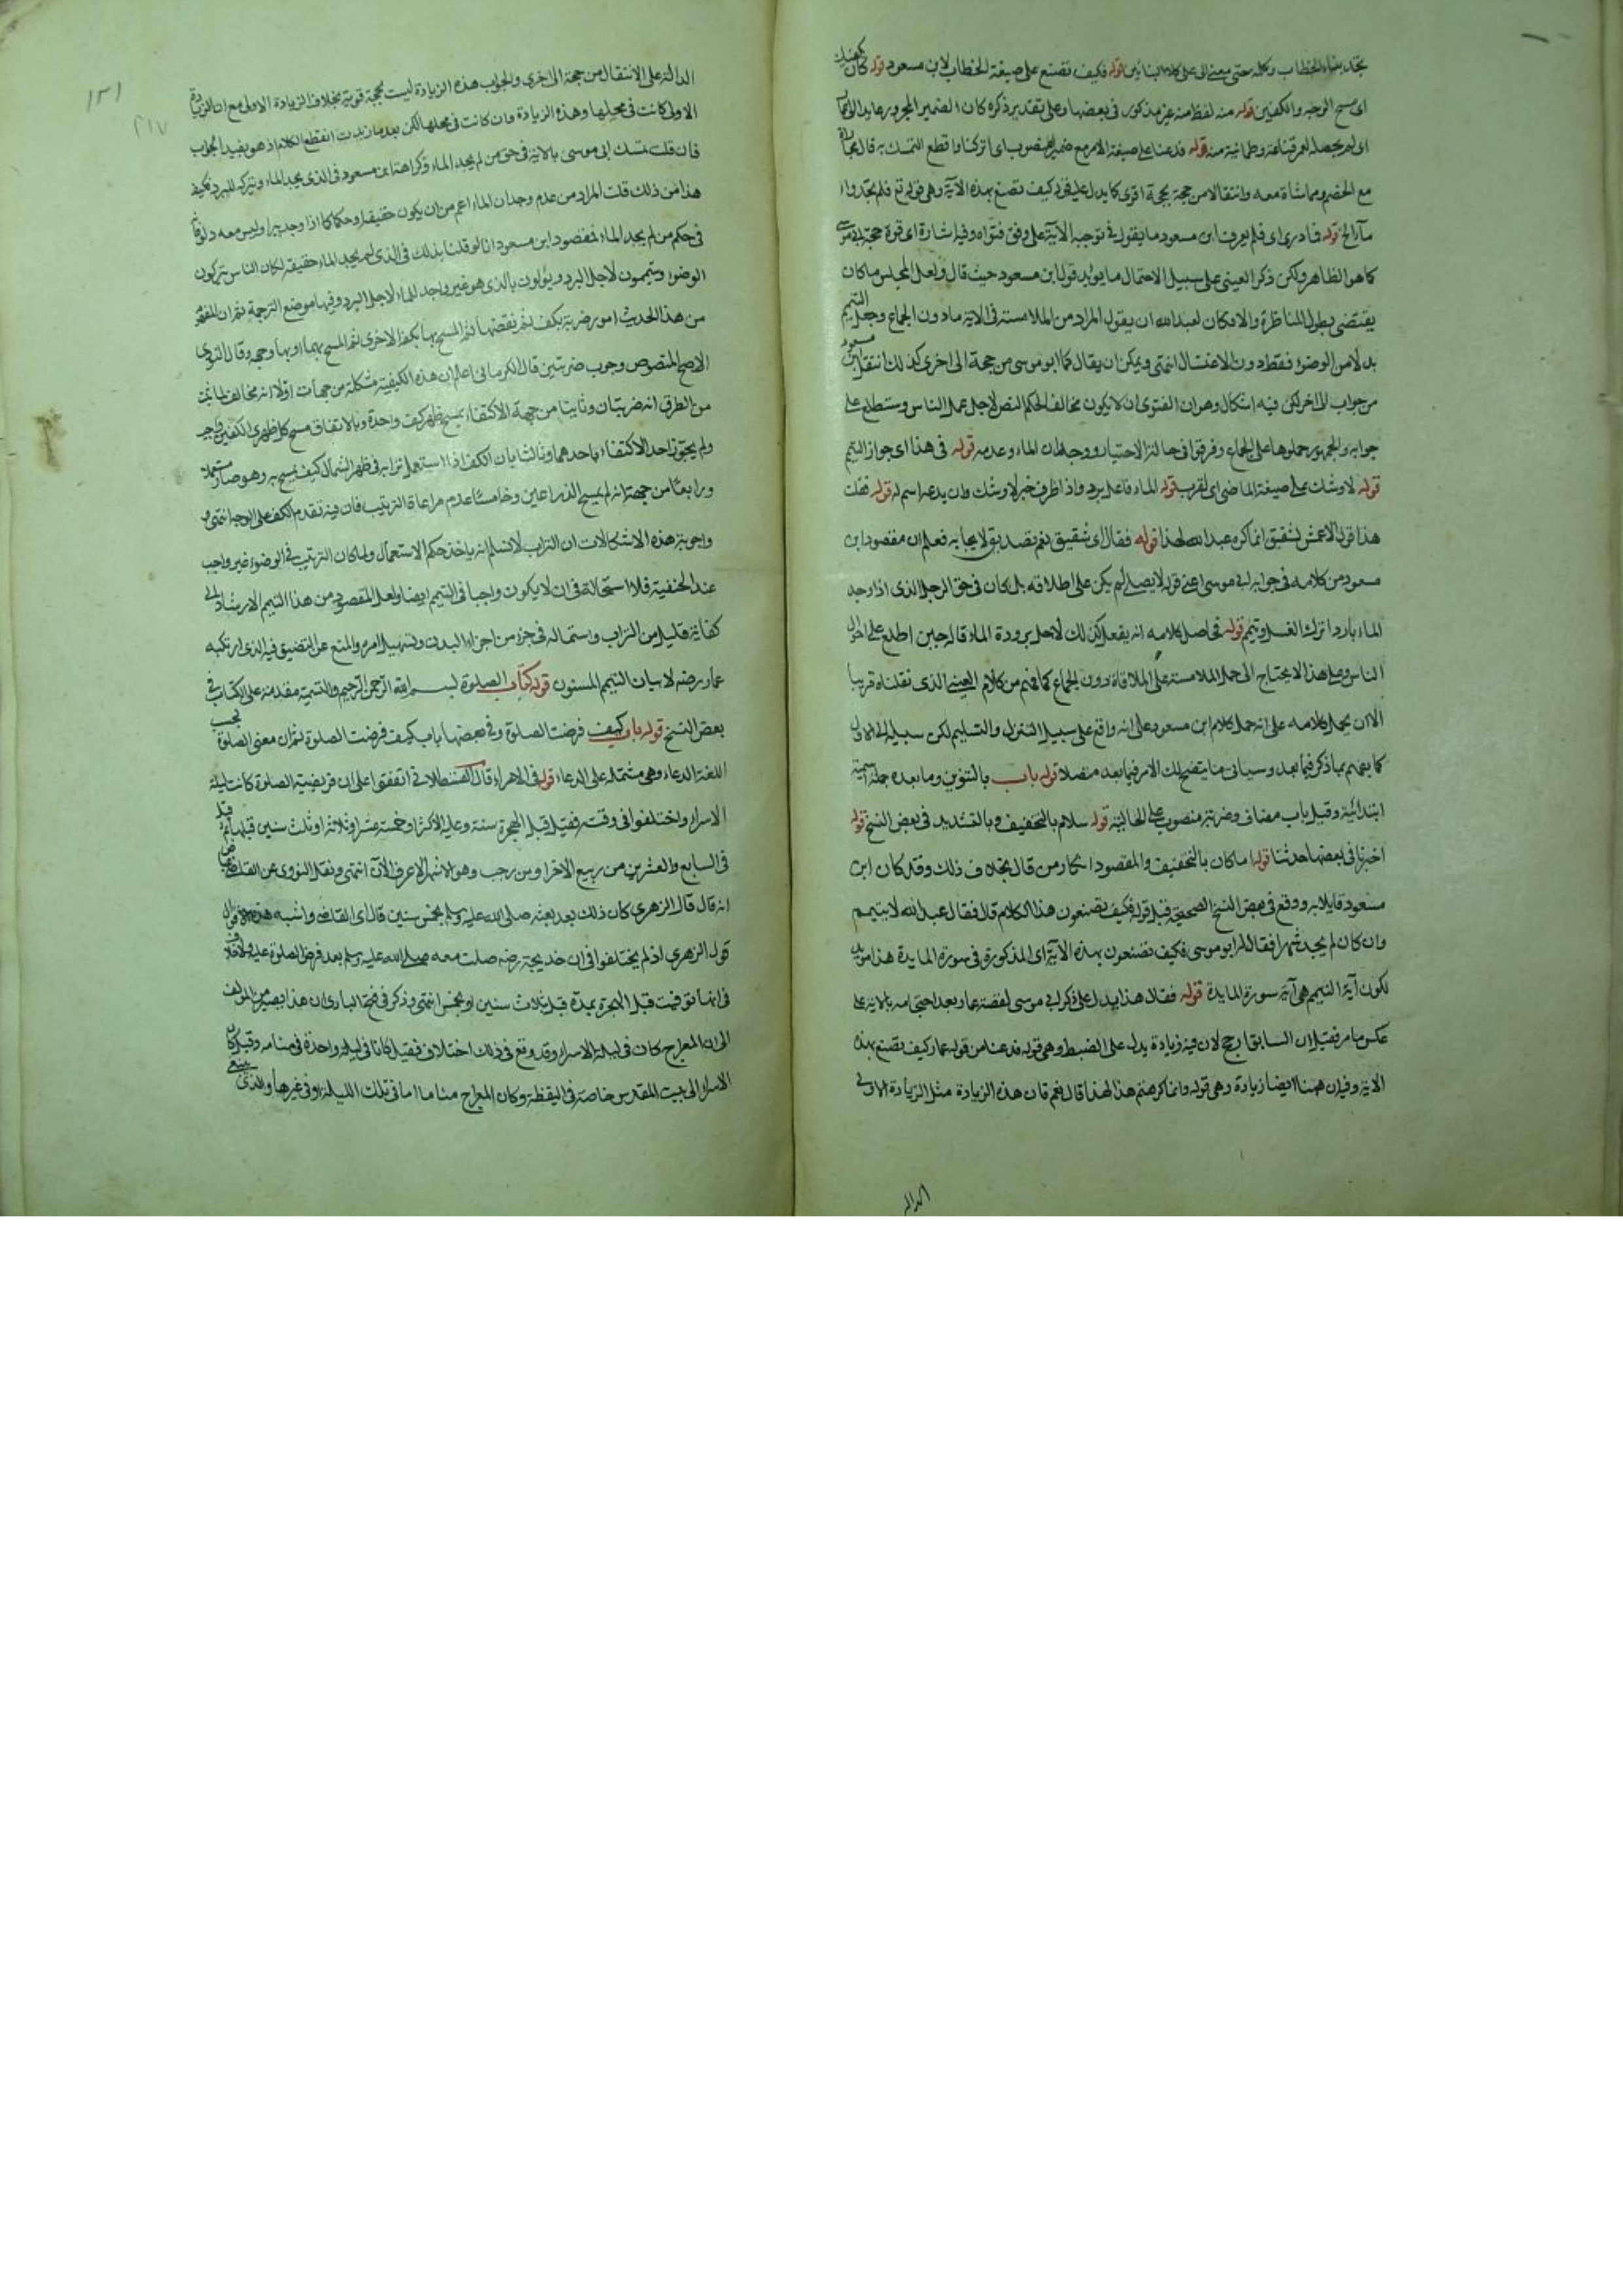 اى مسح الوجه والكفين قوله منه لفظ منه غير مذكور فى بعضها وعلى تقدير ذكره كان الضمير المجرور عايد
قوله فدعنا على صيغة الامر مع ضمير المنصوب اى اتركنا واقطع التمسك به قال
مع الخصم ومماشاة معه وانتقالا من حجة بحجة اقوى كما يدل عليه قوله كيف تصنع بهذه الآية وهى قوله تع فلم تجدوا
ماء الخ قوله فما درى اى فلم يعرف ابن مسعود ما يقول فى توجيه الآية على وفق فتواه وفيه اشارة اى قوة حجة ابى موسى
كما هو الظاهر ولكن ذكر العينى على سبيل الاحتمال ما يؤيد قول ابن مسعود حيث قال ولعل المجلس ما كان
يقتضى بطول المناظرة والا فكان لعبد الله ان يقول المراد من الملامسة فى الاية ما دون الجماع وجعل التيمم
بدلا من الوضوء فقط دون الاغتسال انتهى ويمكن ان يقال كما ابو موسى من حجة الى اخرى كذلك انتقل ابن مسعود
من جواب الى اخر لكن فيه اشكال وهو ان الفتوى ان لا يكون مخالف الحكم النص لاجل عمل الناس وستطلع على
جوابه والجمهور حملوها على الجماع وفرقوا فى حالتى الاختيار ووجدان الماء وعدمه قوله فى هذا اى جواز التيمم
قوله لاوشك على صيغة الماضى اى لقرب قوله الماء فاعل برد واذا ظرف خبر لاوشك وان يدعه اسم له قوله فقلت
هذا قول الاعمش لشقيق انما كره عبد الله لهذا قوله فقال اى شقيق نعم تصديق لايجابه فعلم ان مقصود ابن
مسعود من كلامه فى جوابه لابى موسى اعنى قوله لا يصلى لم يكن على اطلاقه بل كان فى حق الرجل الذى اذا وجد
الماء باردا ترك الغسل وتيمم قوله حاصل كلامه انه يفعل كذلك لاجل برودة الماء قاله حين اطلع على احوال
الناس وعلى هذا لا يحتاج الى حمل الملامسة على الملاقاة دون الجماع كما فهم من كلام العينى الذى نقلناه قريبا
الا ان يحمل كلامه على انه حمل كلام ابن مسعود على انه واقع على سبيل التنزل والتسليم لكن سبيله الى الاول
كما يفهم بما ذكر فيما بعد وسياتى ما يتضح لك الامر فيما بعد متصلا قوله باب بالتنوين وما بعده جملة اسمية
ابتدائية وقيل باب مضاف وضربة منصوب على الحالية قوله سلام بالتخفيف وبالتشديد فى بعض النسخ قوله
اخبرنا فى بعضها حدثنا قوله اما كان بالتخفيف والمقصود انكار من قال بخلاف ذلك وقد كان ابن
مسعود قايلا به ووقع فى بعض النسخ الصحيحة قبل قوله فكيف تصنعون هذا الكلام قال فقال عبد الله لا يتيمم
وان كان لم يجد شهرا فقال له ابو موسى فكيف تصنعون بهذه الآية اى المذكورة فى سورة المايدة هذا مويد
لكون آية التيمم هى آية سورة المايدة قوله فقال هذا يدل على ذكر ابى موسى لقصة عمار بعد احتجاجه بالاية على
عكس ما مر فقيل ان السابق ارجح لان فيه زيادة يدل على الضبط وهى قوله فدعنا من قول عمار كيف تصنع بهذه
الاية وفيه ان ههنا ايضا زيادة وهى قوله وانما كرهتم هذا لهذا قال نعم فان هذه الزيادة مثل الزيادة الاولى
الداله
١٢١
٢١٧
الدالة على الانتقال من حجة الى اخرى والجواب هذه الزيادة ليست بحجة قوية بخلاف الزيادة الاولى مع ان الزيادة
الاولى كانت فى محلها وهذه الزيادة وان كانت فى محلها لكن بعد ما زيدت انقطع الكلام اذ هو يفيد الجواب
فان قلت تمسك ابى موسى بالاية فى حق من لم يجد الماء وكراهة ابن مسعود فى الذى يجد الماء ويتركه للبرد فكيف
هذا من ذلك قلت المراد من عدم وجدان الماء اعم من ان يكون حقيقة او حكما كما اذا وجد بيرا وليس معه دلو
فى حكم من لم يجد الماء فمقصود ابن مسعود انا لو قلنا بذلك فى الذى لم يجد الماء حقيقة لكان الناس يتركون
الوضوء ويتيممون لاجل البرد ويؤولون بالذى هو غير واجد للماء لاجل البرد وفيها موضع الترجمة ثم ان المفهوم
من هذا الحديث امور ضربة بكف ثم نفضها ثم المسح بها بكفه الاخرى ثم المسح بهما او بها وجهه وقال النووى
الاصح المنصوص وجوب ضربتين قال الكرمانى اعلم ان هذه الكيفية مشكلة من جهات اولا انه مخالف لما ثبت
من الطرق انه ضربتان وثانيا من جهة الاكتفاء بمسح ظهر كف واحدة وبالاتفاق مسح كل ظهرى الكفين واجب
ولم يجوز احد الاكتفاء باحدهما وثالثا بان الكف اذا استعمل ترابه فى ظهر الشمال كيف يمسح به وهو صار مستعملا
ورابعا من جهة انه لم يمسح الذراعين وخامسا عدم مراعاة الترتيب فان فيه تقدم الكف على الوجه انتهى
واجوبة هذه الاشكالات ان التراب لا نسلم انه ياخذ حكم الاستعمال ولما كان الترتيب فى الوضوء غير واجب
عند الحنفية فلا استحالة فى ان لا يكون واجبا فى التيمم ايضا ولعل المقصود من هذا التيمم الارشاد الى
كفاية قليل من التراب واستعماله فى جزء من اجزاء البدن وتسهيل امره والمنع عن التضييق فيه الذى ارتكبه
عمار رضه لا بيان التيمم المسنون قوله كتاب الصلوة بسم الله الرحمن الرحيم والتسمية مقدمة على الكتاب فى
بعض النسخ قوله باب كيف فرضت الصلوة وفى بعضها باب كيف فرضت الصلوة ثم ان معنى الصلوة بحسب
اللغة الدعاء وهى مشتملة على الدعاء قوله فى الاسراء قال القسطلانى اتفقوا على ان فريضية الصلوة كانت ليلة
الاسراء واختلفوا فى وقته فقيل قبل الهجرة بسنة وعليه الاكثر او خمسة عشر او ثلاثة او ثلث سنين
فى السابع والعشرين من ربيع الاخر او من رجب وهو الاشهر الاعرف الآن انتهى ونقل النووى عن القاضى
انه قال قال الزهرى كان ذلك بعد بعثه صلى الله عليه وسلم بخمس سنين قال اى القاضى واشبه هذه الاقوال
قول الزهرى اذ لم يختلفوا فى ان خديجة رضه صلت معه صلى الله عليه وسلم بعد فرض الصلوة عليه ولا خلاف
فى انها توفيت قبل الهجرة بمدة قيل بثلاث سنين او بخمس انتهى وذكر فى فتح البارى ان هذا يصير من المؤلف
الى ان المعراج كان فى ليلة الاسراء وقد وقع فى ذلك اختلاف فقيل كانا فى ليلة واحدة فى منامه وقيل كان
الاسراء الى بيت المقدس خاصة فى اليقظة وكان المعراج مناما اما فى تلك الليلة او فى غيرها والذى ينبغى